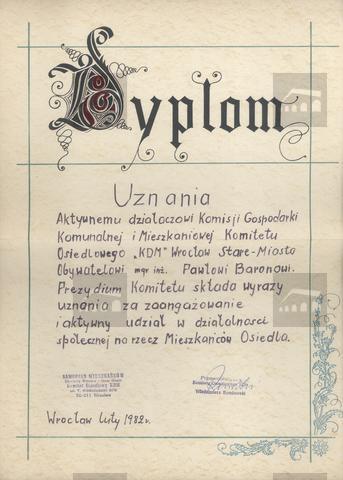 Dyplom
Uznania
Aktywnemu działaczowi Komisji Gospodarki
Komunalnej i Mieszkaniowej Komitetu
Osiedlowego „KDM” Wrocław Stare-Miasto
Obywatelowi mgr inż. Pawłowi Baronowi.
Prezydium Komitetu składa wyrazy
uznania za zaangażowanie
i aktywny udział w działalności
społecznej na rzecz Mieszkańców Osiedla.
SAMORZĄD MIESZKAŃCÓW
Komitet Osiedlowy KDM
Wrocław
Przewodniczący
Włodzimierz
Wrocław luty 1982r.